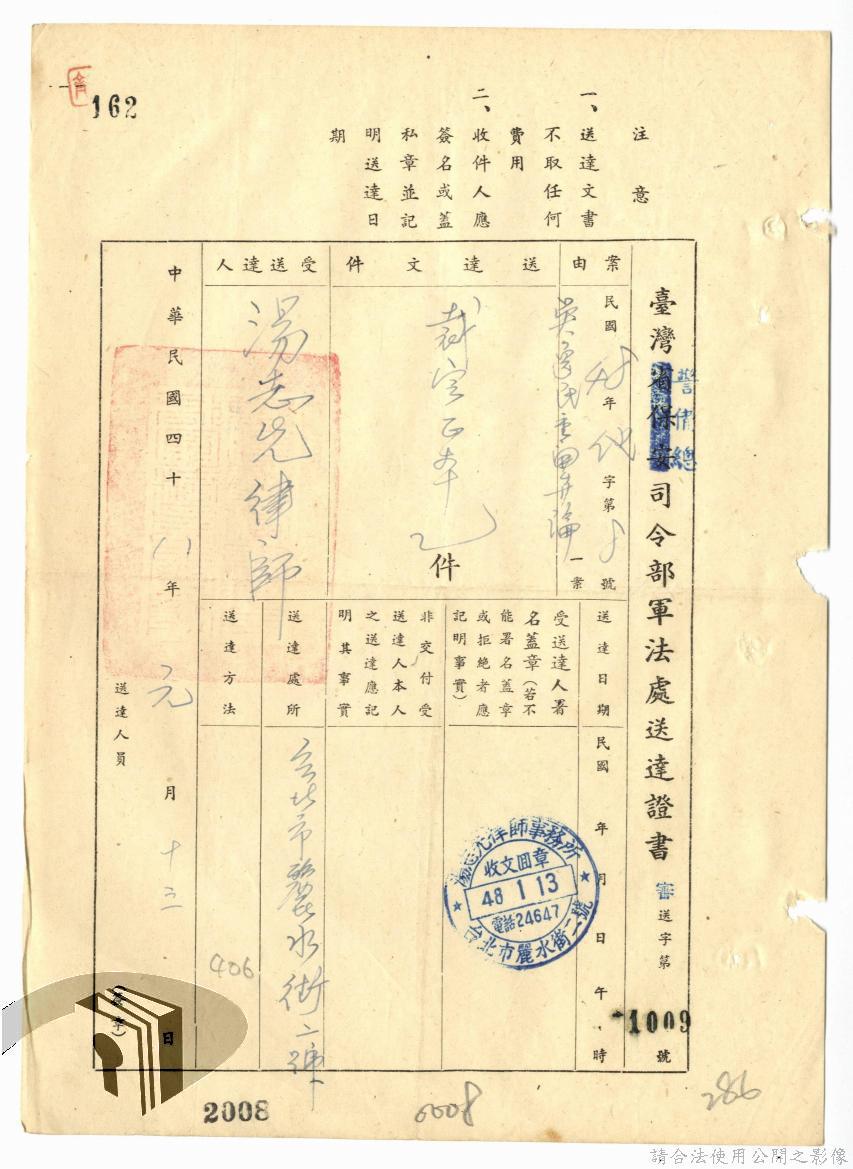 162
注意
一、送達文書
不取任何
費用
二、收件人應
簽名或蓋
私章並記
明送達日
期
臺灣省保安司令部軍法處送達證書
警備總
審送字第1009號
案由
民國48年 字第 號
一案
送達文件
裁定正本乙件
受送達人
湯志先律師
送達日期
民國 年 月 日 午 時
受送達人署
名蓋章(若不
能署名蓋章
或拒絕者應
記明事實)
非交付受
送達人本人
之送達應記
明其事實
送達處所
台北市麗水街二號
送達方法
中華民國四十八年元月十三日
送達人員
(蓋章)
湯志先律師事務所
收文回章
48 1 13
電話24647
台北市麗水街二號
406
2008
0008
286
請合法使用公開之影像